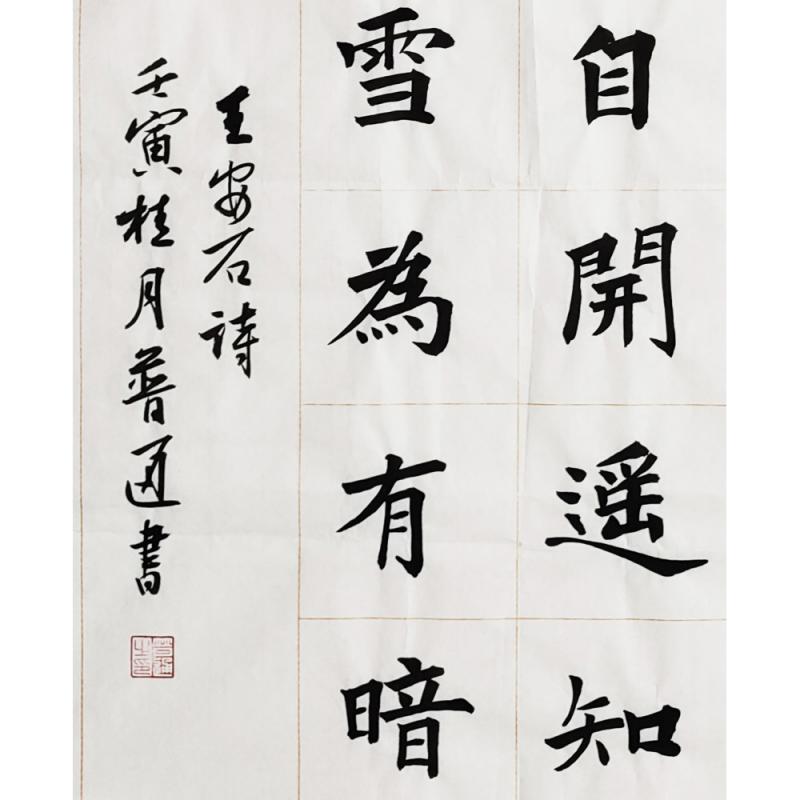 自開遥知
雪為有暗
王安石詩
壬寅桂月普通書